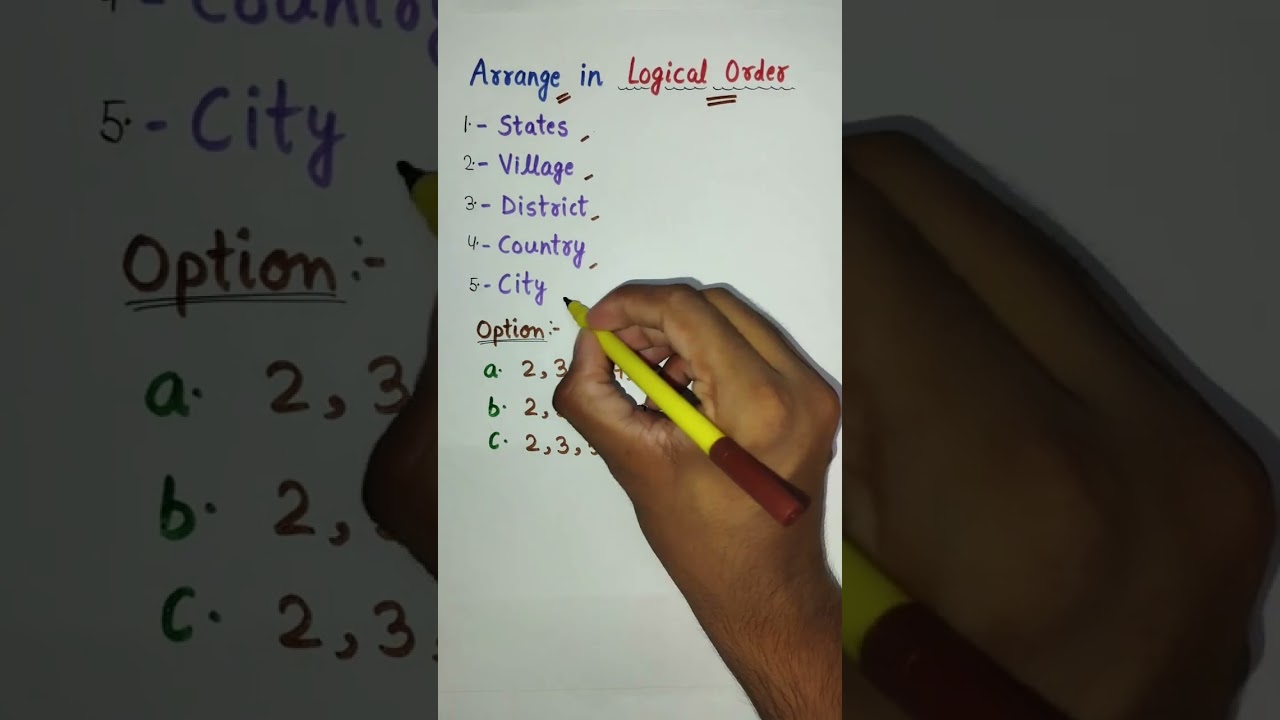 Arrange in Logical Order
1. - States,
2. - Village,
3. - District,
4. - Country,
5. - City
Option:-
a. 2, 3
b. 2,
c. 2, 3,